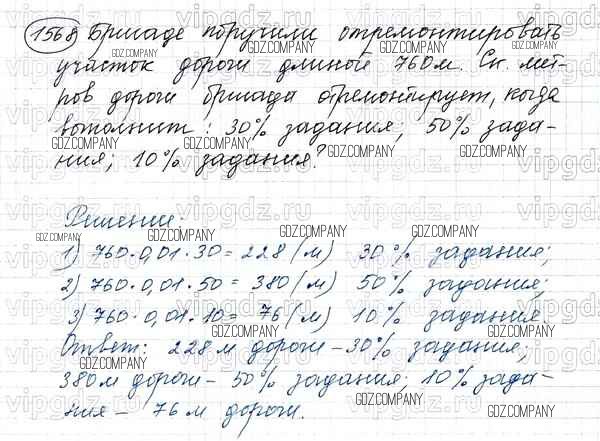 1568 Бригаде поручили отремонтировать
участок дороги длиной 760м. Ск. мет-
ров дороги бригада отремонтирует, когда
выполнит: 30% задания, 50% зада-
ния; 10% задания?
Решение:
1) 760·0,01·30=228(м) 30% задания;
2) 760·0,01·50=380(м) 50% задания;
3) 760·0,01·10=76(м) 10% задания.
Ответ: 228м дороги-30% задания;
380м дороги- 50% задания; 10% зада-
ния - 76м дороги.